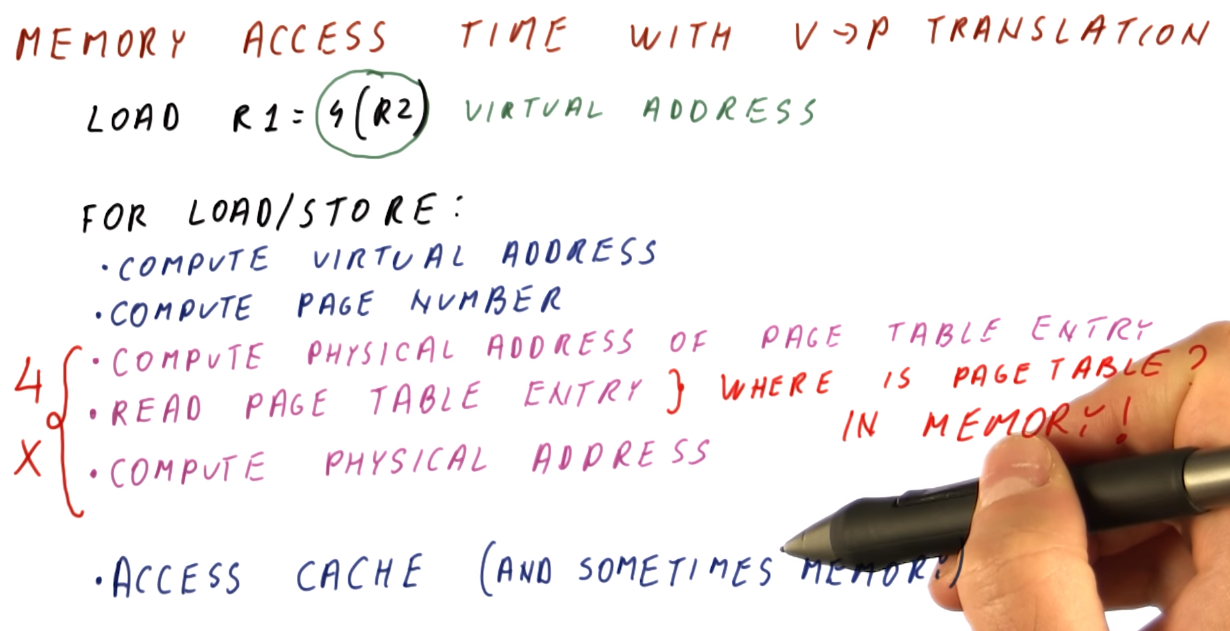 MEMORY ACCESS TIME WITH V→P TRANSLATION
LOAD R1 = 4(R2) VIRTUAL ADDRESS
FOR LOAD/STORE:
• COMPUTE VIRTUAL ADDRESS
• COMPUTE PAGE NUMBER
• COMPUTE PHYSICAL ADDRESS OF PAGE TABLE ENTRY
• READ PAGE TABLE ENTRY } WHERE IS PAGE TABLE?
IN MEMORY!
• COMPUTE PHYSICAL ADDRESS
4
X
• ACCESS CACHE (AND SOMETIMES MEMORY)